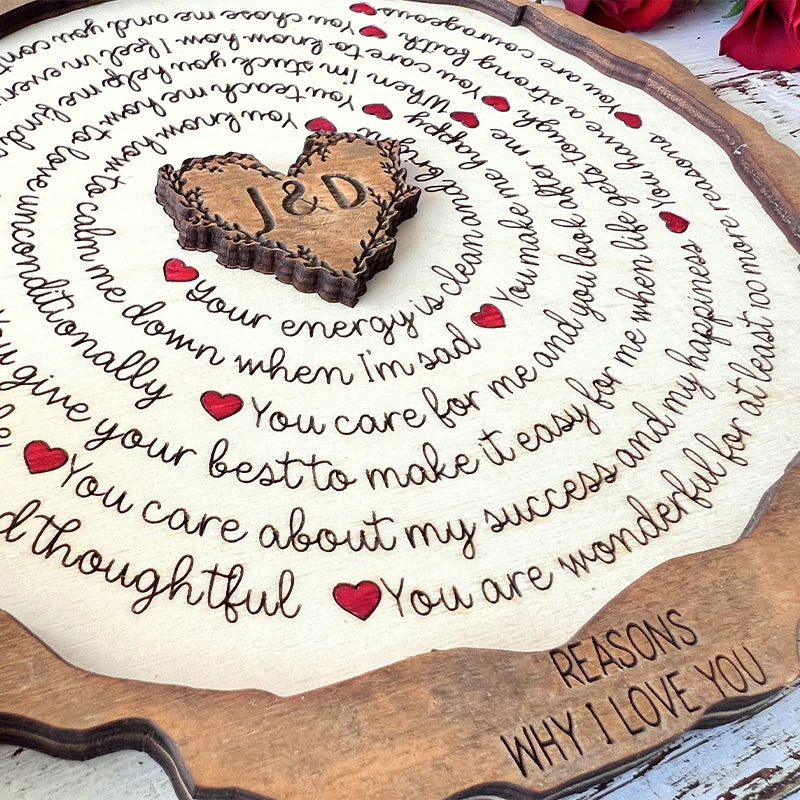 J & D
Your energy is clean and bright
You know how to calm me down when I'm sad
You make me happy
You teach me how to love unconditionally
You care for me and you look after me
When I'm stuck you help me find
You give your best to make it easy for me when life gets tough
You care to know how I feel in
You care about my success and my happiness
You have a strong faith
You chose me and you
thoughtful
You are wonderful for at least 100 more reasons
You are courageous
REASONS
WHY I LOVE YOU